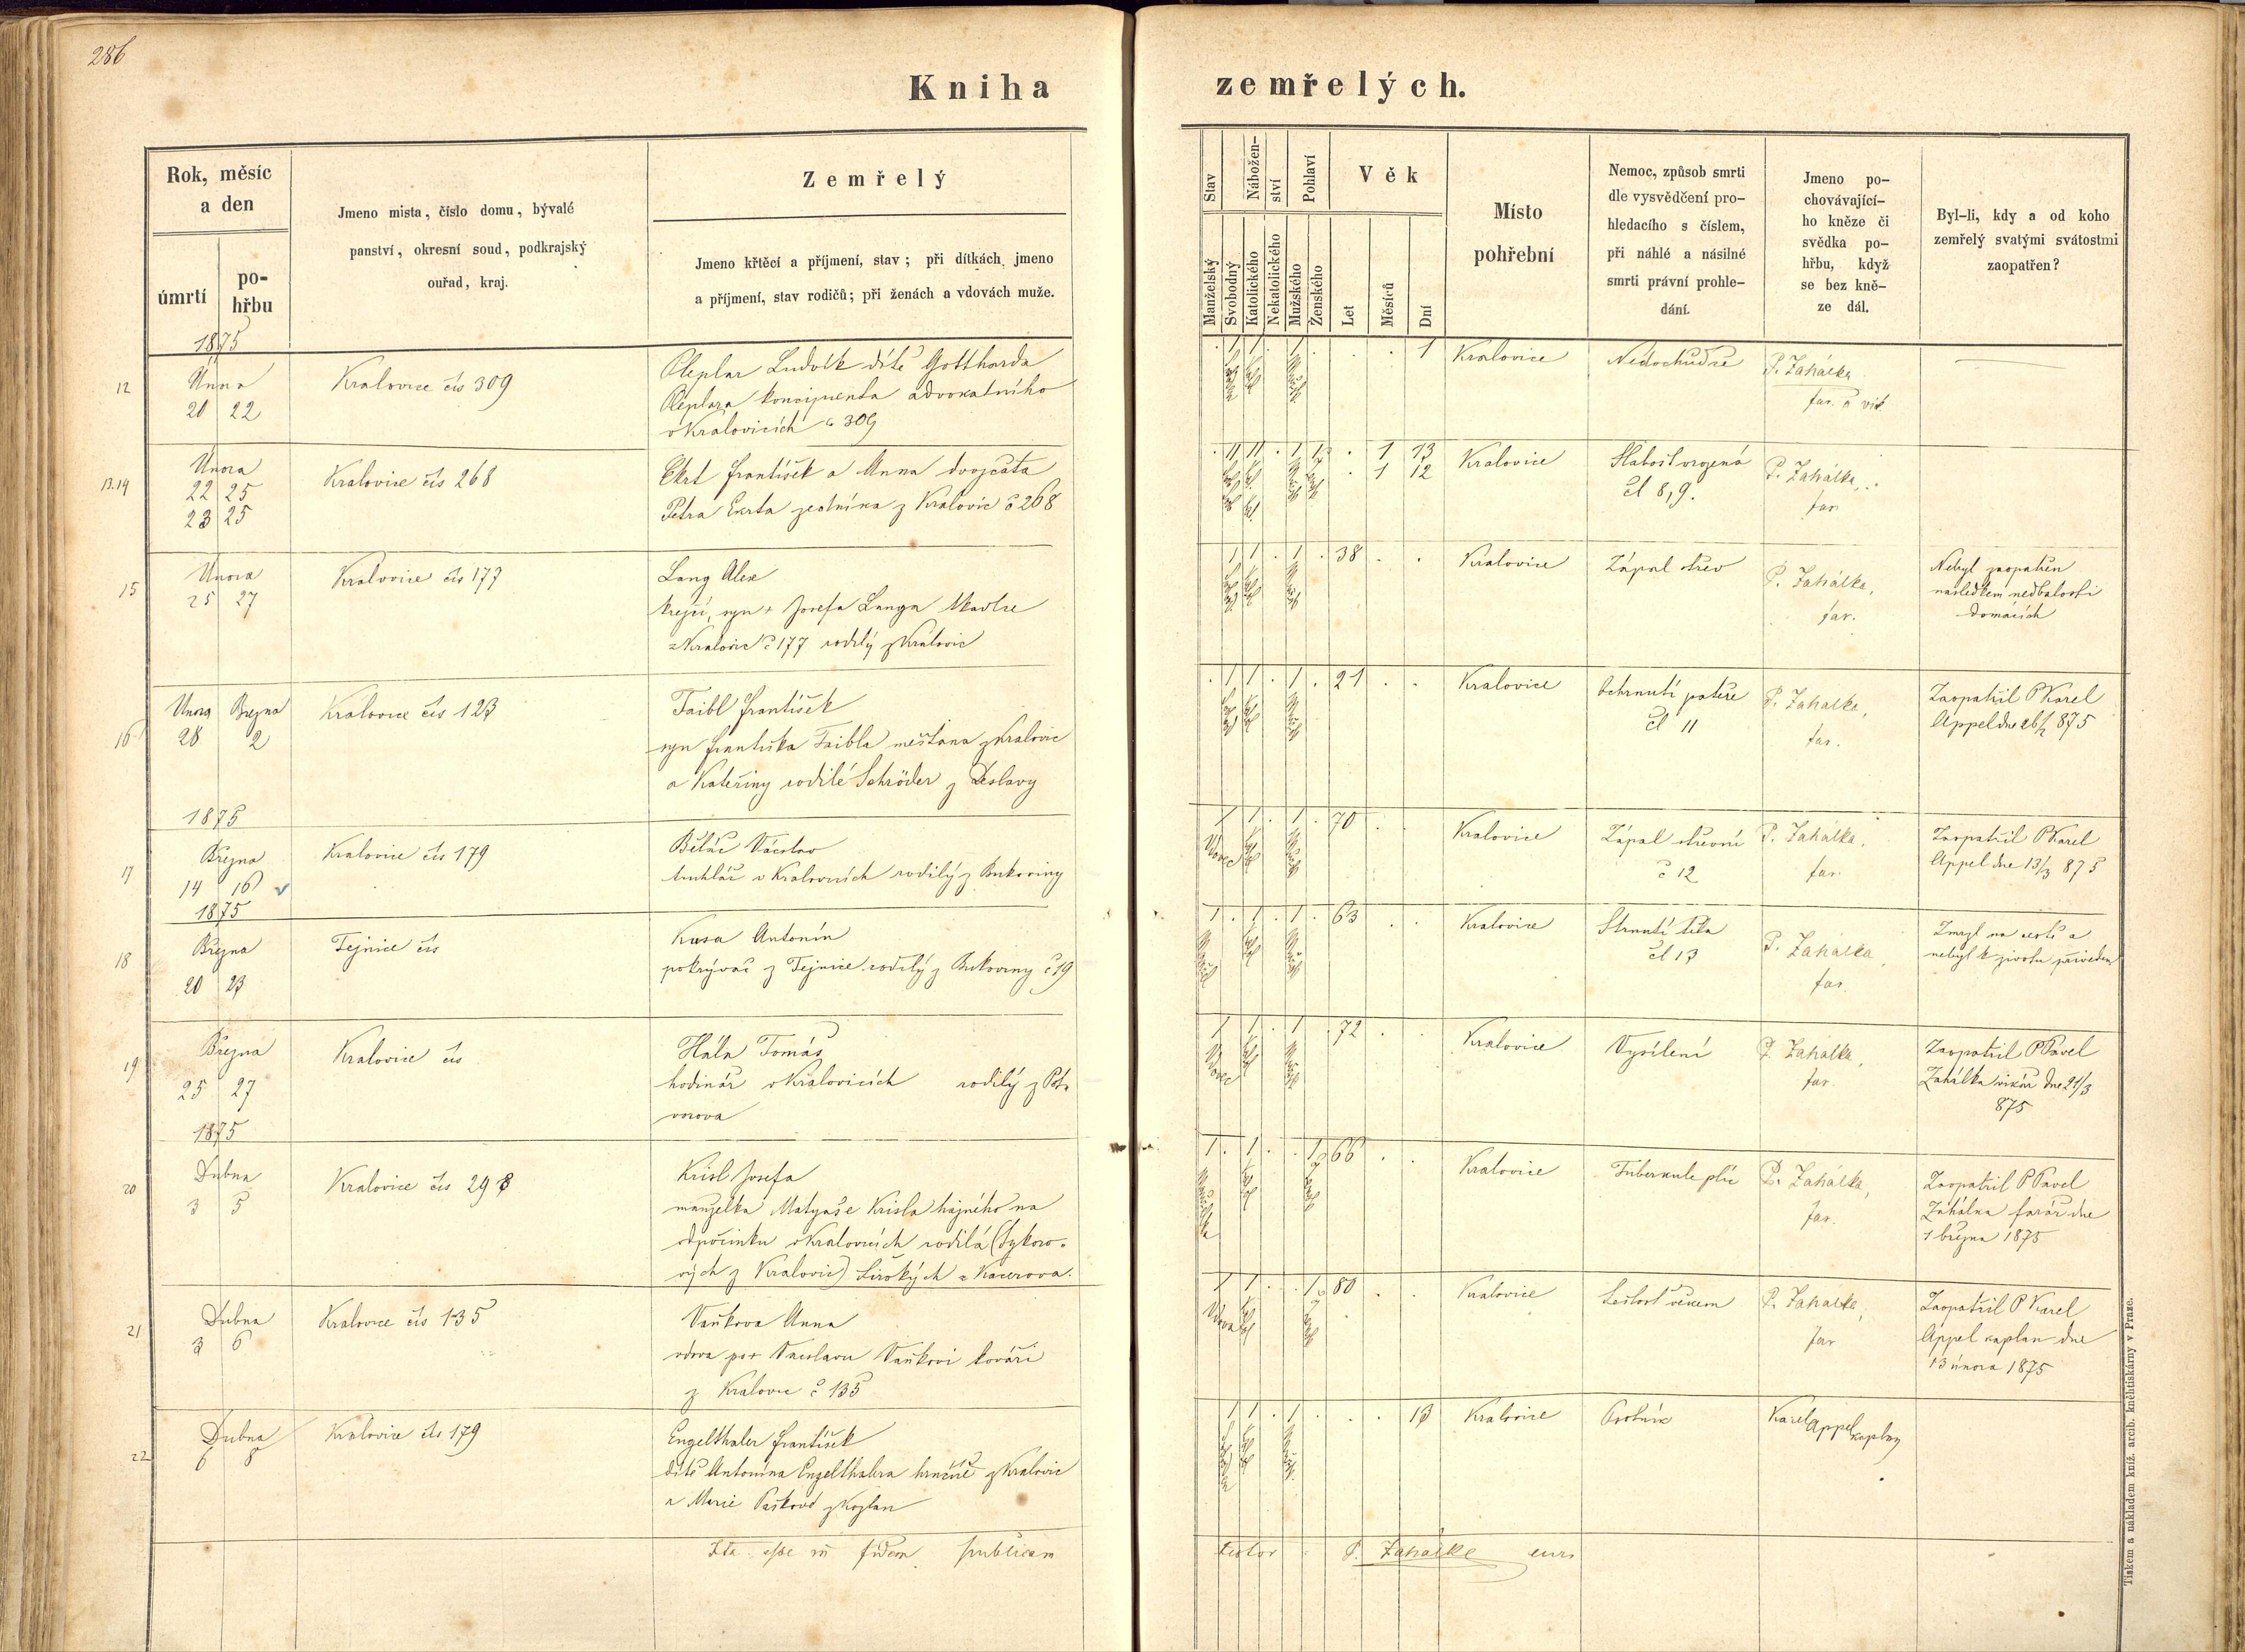 286
Kniha zemřelých.
Rok, měsíc
a den
úmrtí
po-
hřbu
Jmeno mista, číslo domu, bývalé
panství, okresní soud, podkrajský
ouřad, kraj.
Zemřelý
Jmeno křtěcí a příjmení, stav; při dítkách, jmeno
a příjmení, stav rodičů; při ženách a vdovách muže.
Stav
Nábožen-
ství
Pohlaví
Věk
Manželský
Svobodný
Katolického
Nekatolického
Mužského
Ženského
Let
Měsíců
Dní
Místo
pohřební
Nemoc, způsob smrti
dle vysvědčení pro-
hledacího s číslem,
při náhlé a násilné
smrti právní prohle-
dání.
Jmeno po-
chovávající-
ho kněze či
svědka po-
hřbu, když
se bez kně-
ze dál.
Byl-li, kdy a od koho
zemřelý svatými svátostmi
zaopatřen?
1875
12
Února
20 22
Kralovice čís 309
Ludvík dítě Gottharda
koncipienta advokatního
v Kralovicích č 309
1 1 1 1
Kralovice
Nedochůdče
P. Zahálka
far. a vik.
13.14
Února
22 25
23 25
Kralovice čís 268
Ekrt František a Anna dvojčata
Petra Ekrta zedníka z Kralovic č 268
1 13
1 12
Kralovice
Slabost vrozená
čl 8,9.
P. Zahálka,
far
15
Února
25 27
Kralovice čís 177
Lang Alex
krejčí, syn + Josefa Langa tkadlce
z Kralovic č 177 rodilý z Kralovic
1 1 1 38
Kralovice
Zápal střev
P. Zahálka,
far.
Nebyl zaopatřen
následkem nedbalosti
domácích
16
Února Března
28 2
Kralovice čís 123
Taibl František
syn Františka Taibla měšťana z Kralovic
a Kateřiny rodilé Schröder z
1 1 1 21
Kralovice
Ochrnutí páteře
čl 11
P. Zahalka,
far.
Zaopatřil P Karel
Appel dne 26/2 875
1875
17
Března
14 16
Kralovice čís 179
Běláč Václav
truhlář v Kralovicích rodilý z Bukoviny
1 1 1 70
Vdovec
Kralovice
Zápal střevní
č 12
P. Zahálka,
far.
Zaopatřil P Karel
Appel dne 13/3 875
1875
18
Března
20 23
Tejnice čís
Kusa Antonín
pokrývač z Tejnice rodilý z Bukoviny č 19
1 1 1 63
Kralovice
Strnutí těla
čl 13
P. Zahálka,
far.
Zmrzl na cestě a
nebyl k životu přiveden
19
Března
25 27
Kralovice čís
Hála Tomáš
hodinář v Kralovicích rodilý z
1 1 1 72
Vdovec
Kralovice
Vysílení
P. Zahálka,
far.
Zaopatřil P Pavel
Zahálka vikář dne 21/3
875
1875
20
Dubna
3 5
Kralovice čís 298
Krisl Josefa
manželka Matyáše Krisla hajného na
odpočinku v Kralovicích rodilá (Sykoro-
vých z Kralovic) Širokých z Kacerova.
1 1 1 66
Manželka
Kralovice
Tuberkule plic
P. Zahálka,
far.
Zaopatřil P Pavel
Zahálka farář dne
1 března 1875
21
Dubna
3 6
Kralovice čís 135
Vaňkova Anna
vdova po + Vaclavu Vaňkovi kováři
z Kralovic č 135
1 1 1 80
Vdova
Kralovice
Sešlost věkem
P. Zahalka,
far
Zaopatřil P Karel
Appel kaplan dne
13 února 1875
22
Dubna
6 8
Kralovice čís 179
Engelthaler František
dítě Antonína Engelthalera hrnčíře z Kralovic
a Marie Paškové z Kozlan
1 1 1 13
Kralovice
Psotník
Karel Appel kaplan
Ita esse in fidem publicam
testor P. Zahálka
Tiskem a nákladem kníž. arcib. knéhtiskárny v Praze.